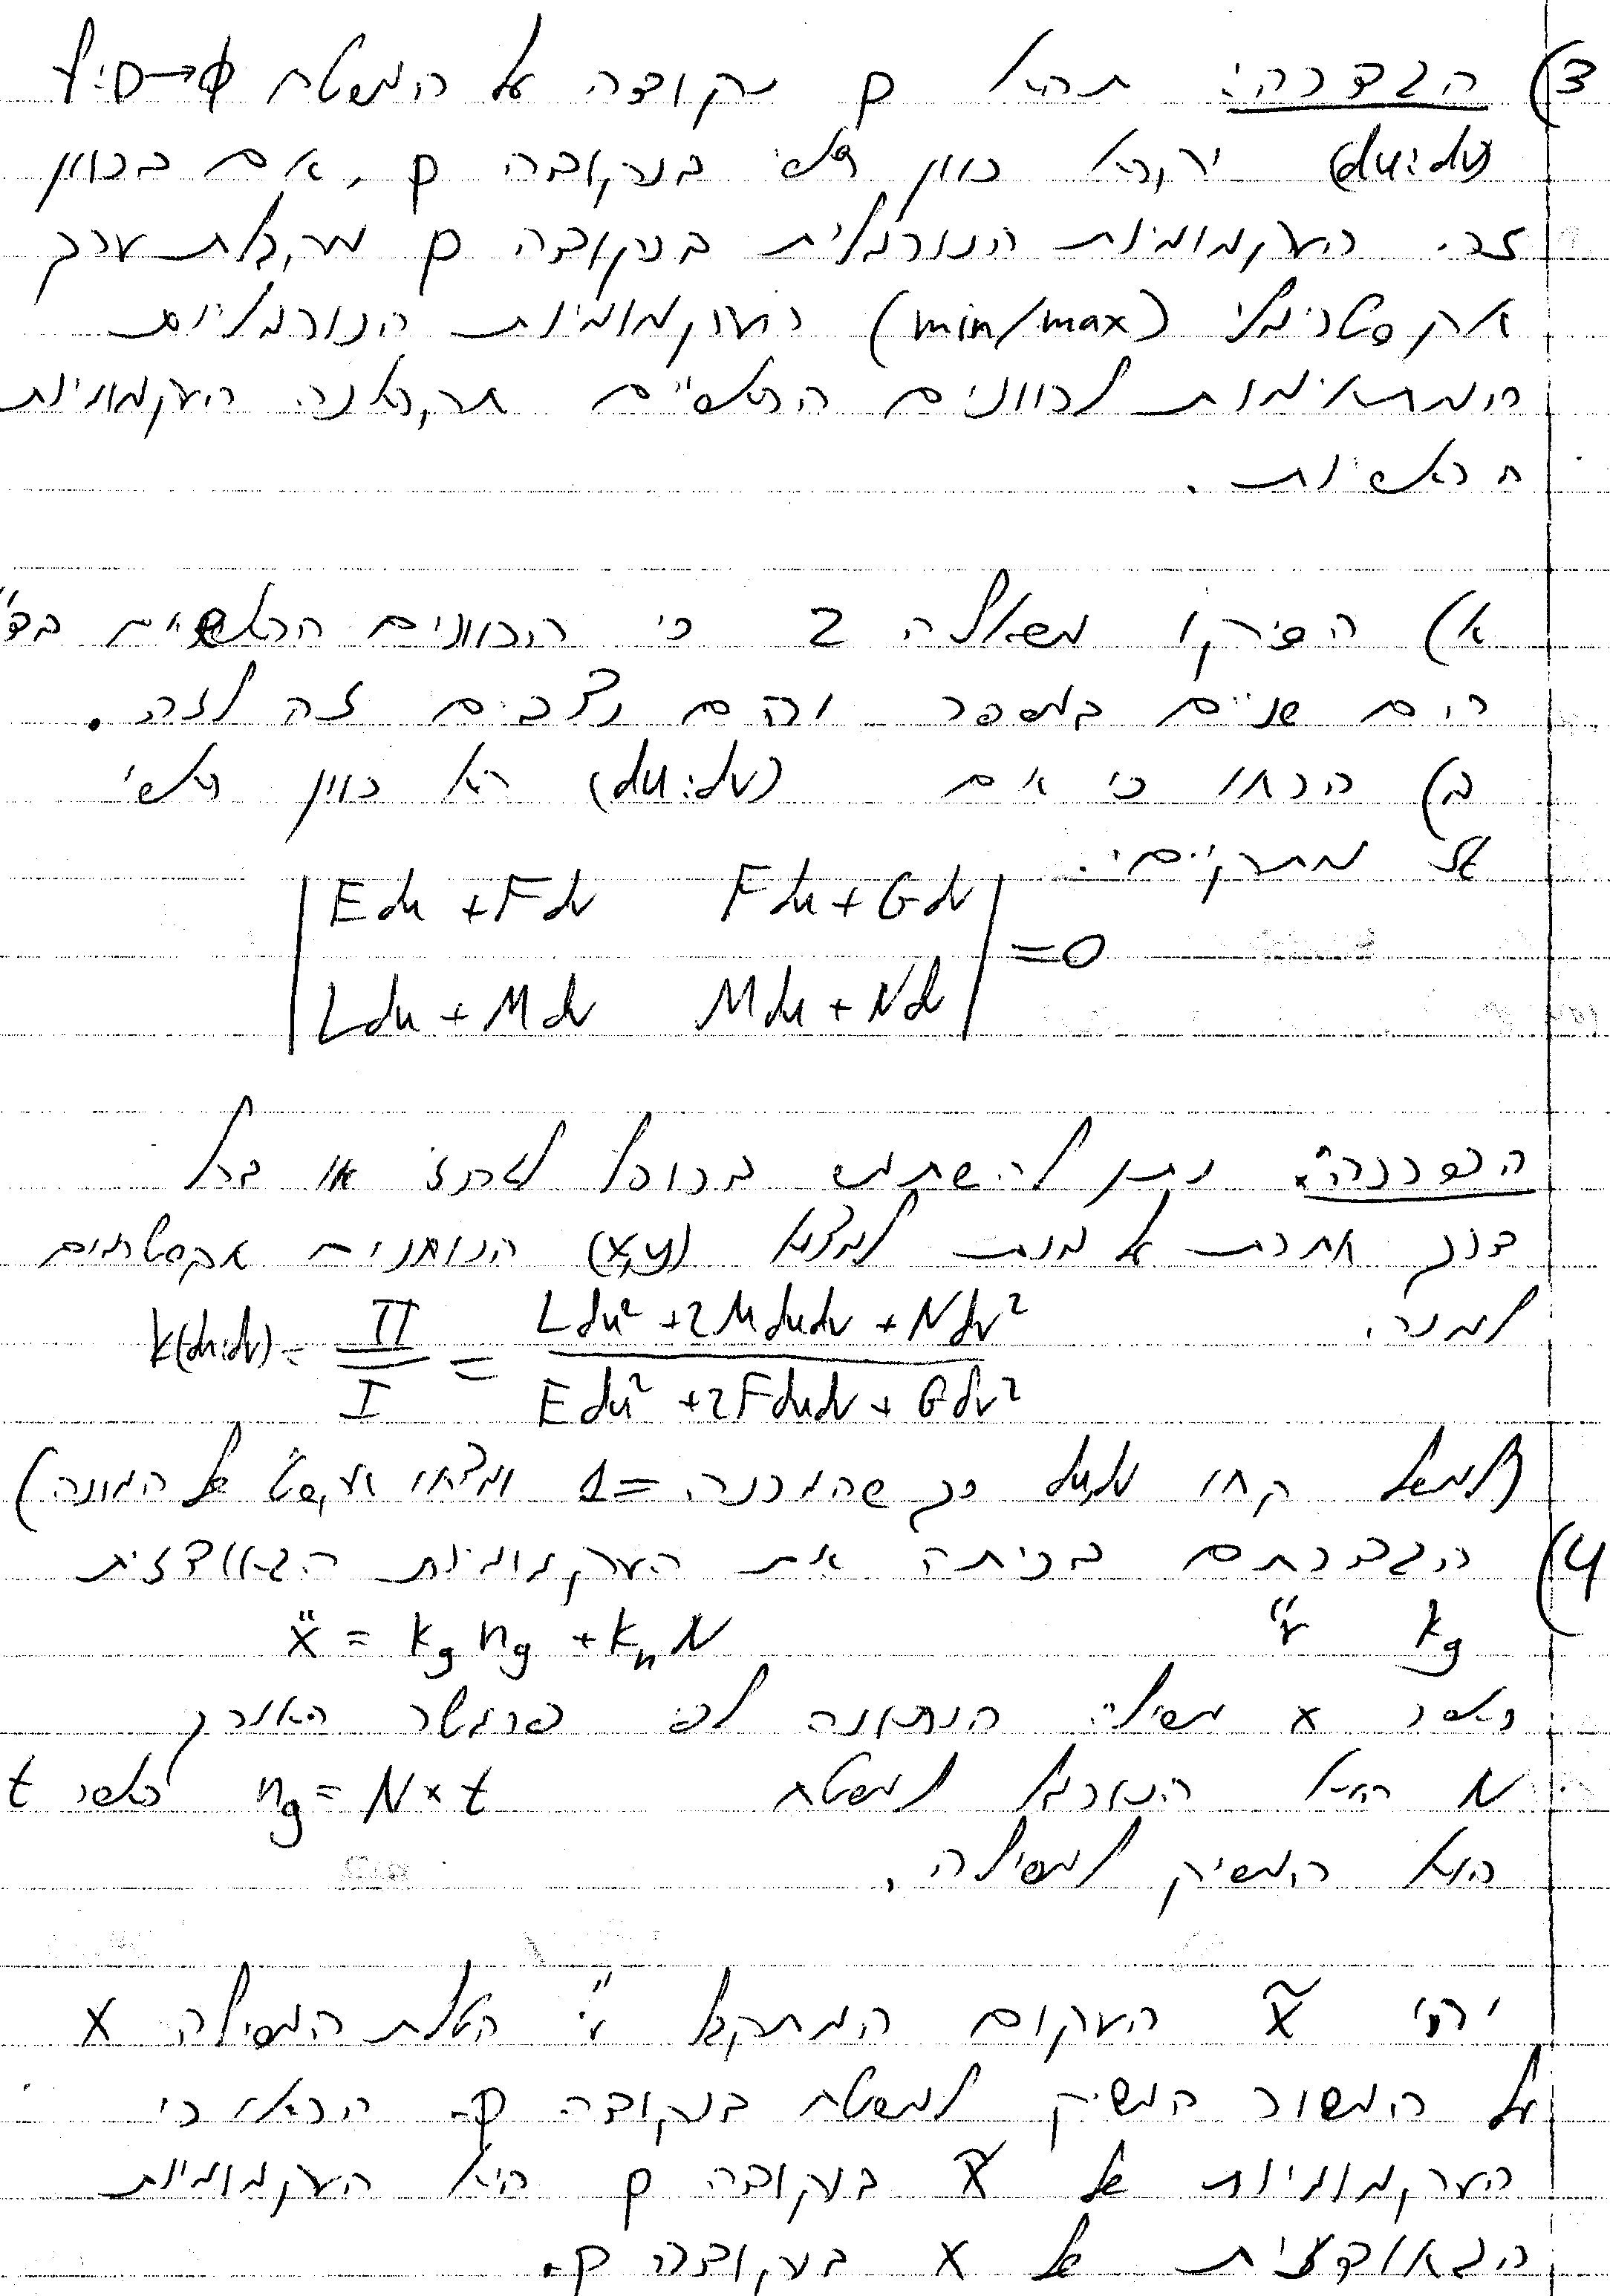 3) הגדרה: תהא p נקודה על המשטח f:D→ϕ
(du:dv) יקרא כוון ראשי בנקודה p, אם בכוון
זה. העקמומיות הנורמלית בנקודה p מקבלת ערך
אקסטרימלי (min/max) העקמומיות הנורמליות
המתאימות לכוונים הראשיים תקראנה העקמומיות
הראשיות.
א) הסיקו משאלה 2 כי הכוונים הראשיים בד"
הים שניים במספר והם נצבים זה לזה.
ב) הכחו כי אם (du:dv) הוא כוון ראשי
אז מתקיים:
| Edu + Fdv Fdu + Gdv |
| Ldu + Mdv Mdu + Ndv | = 0
הכוונה: ניתן להשתמש בכופלי לגרנז' או בכל
דרך אחרת על מנת למצוא (x,y) הנותנים אקסטרמים
למנה.
k(du:dv) = II/I = (Ldu² + 2Mdudv + Ndv²)/(Edu² + 2Fdudv + Gdv²)
(למשל קחו du,dv כך שהמכנה =1 ומצאו של המונה)
4) הגדרתם בכיתה את העקמומיות הגאודזית
kg ע"י ẍ = kg ng + kn N
כאשר x מסילה הנתונה לפי פרמטר האורך
N הוא הנורמל למשטח ng = N×t כאשר t
הוא המשיק למסילה.
יהי x̃ העקום המתקבל ע"י הטלת המסילה x
על המשור המשיק למשטח בנקודה p. הראו כי
העקמומיות של x̃ בנקודה p היא העקמומיות
הגאודזית של x בנקודה p.